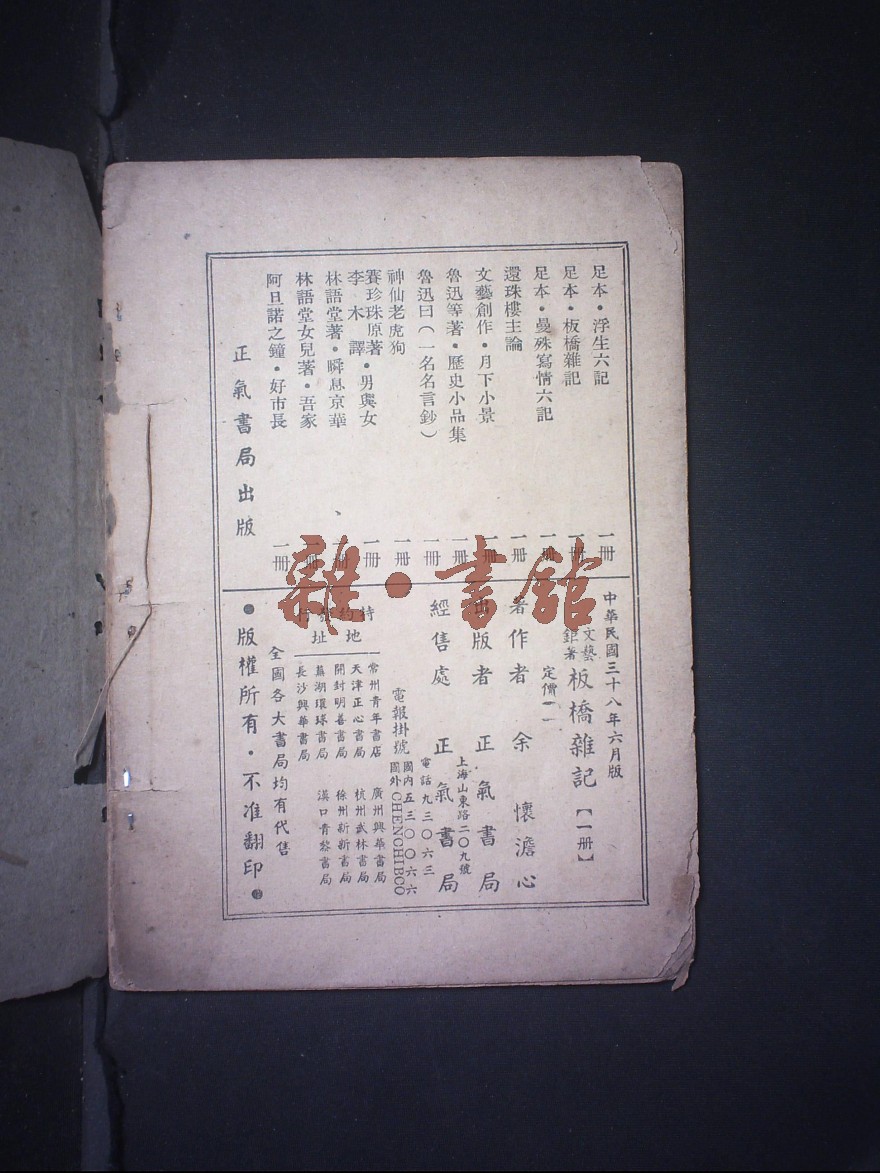 足本·浮生六記 一冊
足本·板橋雜記 一冊
足本·曼殊寫情六記 一冊
還珠樓主論 一冊
文藝創作·月下小景 一冊
魯迅等著·歷史小品集 一冊
魯迅曰(一名名言鈔) 一冊
神仙老虎狗 一冊
賽珍珠原著·男與女 一冊
李木譯
林語堂著·瞬息京華 一冊
林語堂女兒著·吾家 一冊
阿旦諾之鐘·好市長 一冊
正氣書局出版
中華民國三十八年六月版
文藝鉅著 板橋雜記【一冊】
定價
著作者 余懷澹心
出版者 正氣書局
上海山東路二〇九號
經售處 正氣書局
電話九三〇六三
電報掛號 國內五三〇〇六六
國外CHENCHIBCO
特約地址
常州青年書店 廣州興華書局
天津正心書局 杭州武林書局
開封明善書局 徐州新新書局
蕪湖環球書局 漢口青黎書局
長沙興華書局
全國各大書局均有代售
●版權所有·不准翻印●
雜·書館